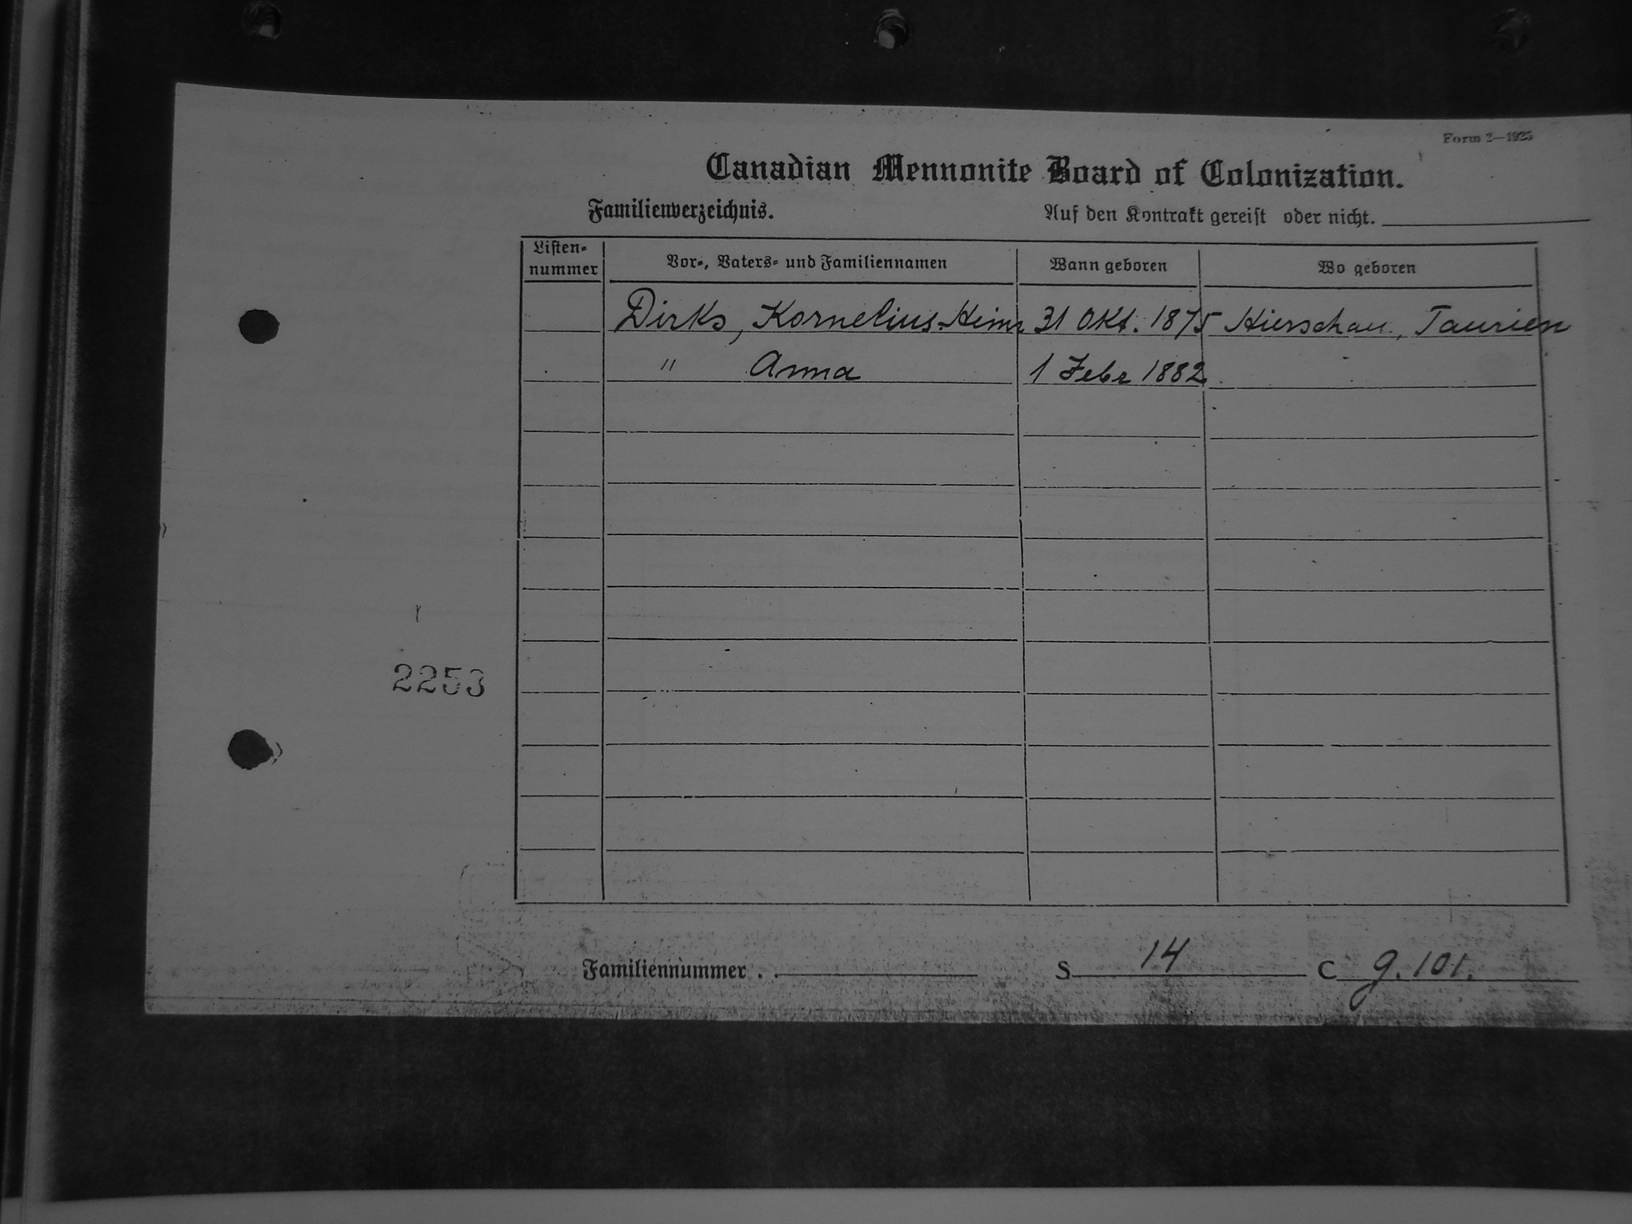 Form 2—1925
Canadian Mennonite Board of Colonization.
Familienverzeichnis. Auf den Kontrakt gereist oder nicht.
Listen-nummer Vor-, Vaters- und Familiennamen Wann geboren Wo geboren
Dirks, Kornelius Heinr 31 Okt. 1875 Hierschau, Taurien
" Anna 1 Febr 1882
2253
Familiennummer . S 14 C g. 101.